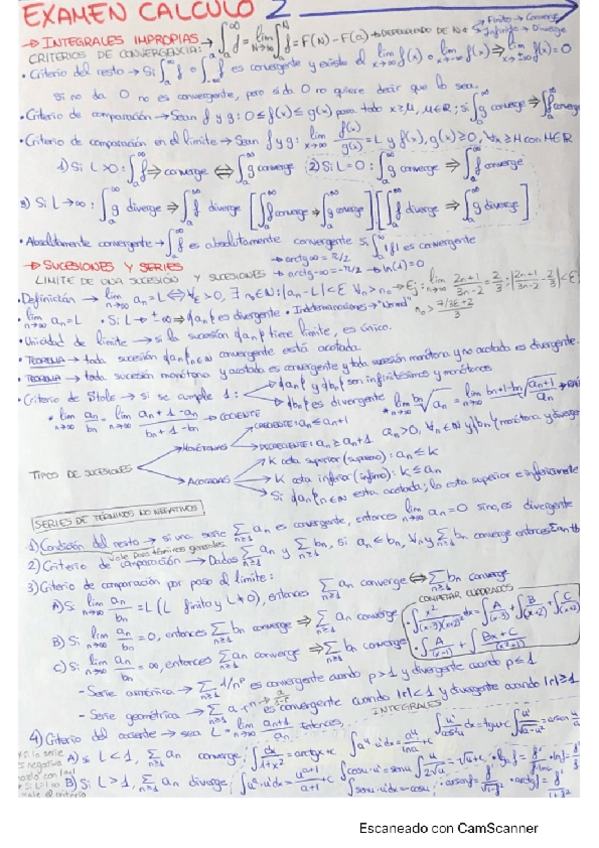 EXAMEN CALCULO 2
→ INTEGRALES IMPROPIAS: → ∫_a^∞ f = lim_{N→∞} ∫_a^N f = F(N) - F(a) → DEPENDIENDO DE N → Finito → Converge
Infinito → Diverge
CRITERIOS DE CONVERGENCIA:
• Criterio del resto → Si ∫_a^∞ f o ∫_{-∞}^a f es convergente y existe el lim_{x→∞} f(x) o lim_{x→-∞} f(x) ⇒ lim_{x→±∞} f(x) = 0
Si no da 0 no es convergente, pero si da 0 no quiere decir que lo sea.
• Criterio de comparación → Sean f y g: 0 ≤ f(x) ≤ g(x) para todo x ≥ M, M∈R; si ∫_a^∞ g converge ⇒ ∫_a^∞ f converge
• Criterio de comparación en el límite → Sean f y g: lim_{x→∞} f(x)/g(x) = L y f(x), g(x) ≥ 0, ∀x ≥ M con M∈R
1) Si L>0: ∫_a^∞ f → converge ⇔ ∫_a^∞ g converge 2) Si L=0: ∫_a^∞ g converge ⇒ ∫_a^∞ f converge
3) Si L→∞: ∫_a^∞ g diverge ⇒ ∫_a^∞ f diverge [∫_a^∞ f converge ⇒ ∫_a^∞ g converge] [∫_a^∞ f diverge ⇒ ∫_a^∞ g diverge]
• Absolutamente convergente → ∫_a^∞ f es absolutamente convergente si ∫_a^∞ |f| es convergente
→ SUCESIONES Y SERIES → arctg ∞ = π/2
LIMITE DE UNA SUCESIÓN Y SUCESIONES → arctg -∞ = -π/2 → ln(1) = 0
• Definición → lim_{n→∞} a_n = L ⇔ ∀ε>0, ∃ n_0∈N: |a_n - L| < ε ∀n > n_0 → Ej: lim_{n→∞} (2n+1)/(3n-2) = 2/3: |(2n+1)/(3n-2) - 2/3| < ε
• lim_{n→∞} a_n = L • Si L → ±∞ ⇒ {a_n} es divergente • Indeterminaciones → "Normal" n_0 > (7/3ε + 2)/3
• Unicidad de límite → si la sucesión {a_n} tiene límite, es único.
• TEOREMA → toda sucesión {a_n} n∈N convergente está acotada.
• TEOREMA → toda sucesión monótona y acotada es convergente y toda sucesión monótona y no acotada es divergente.
• Criterio de Stolz → si se cumple 1: {a_n} y {b_n} son infinitésimos y monótonas
{b_n} es divergente
• lim_{n→∞} a_n/b_n = lim_{n→∞} (a_{n+1} - a_n)/(b_{n+1} - b_n) → COCIENTE
TIPOS DE SUCESIONES
MONÓTONAS
CRECIENTE: a_n ≤ a_{n+1}
DECRECIENTE: a_n ≥ a_{n+1}
ACOTADAS
K cota superior (supremo): a_n ≤ K
K cota inferior (ínfimo): K ≤ a_n
Si {a_n} n∈N esta acotada; lo esta superior e inferiormente
SERIES DE TÉRMINOS NO NEGATIVOS
1) Condición del resto → si una serie Σ_{n≥1} a_n es convergente, entonces lim_{n→∞} a_n = 0 sino, es divergente
Vale para términos generales
2) Criterio de comparación → Dadas Σ_{n≥1} a_n y Σ_{n≥1} b_n, si a_n ≤ b_n, ∀n y Σ_{n≥1} b_n converge entonces Σ a_n
3) Criterio de comparación por paso el límite:
A) Si lim_{n→∞} a_n/b_n = L (L finito y L≠0), entonces Σ_{n≥1} a_n converge ⇔ Σ_{n≥1} b_n converge
COMPLETAR CUADRADOS
B) Si lim_{n→∞} a_n/b_n = 0, entonces Σ_{n≥1} b_n converge ⇒ Σ_{n≥1} a_n converge
C) Si lim_{n→∞} a_n/b_n = ∞, entonces Σ_{n≥1} a_n converge ⇒ Σ_{n≥1} b_n converge
- Serie armónica → Σ_{n≥1} 1/n^p es convergente cuando p>1 y divergente cuando p≤1
- Serie geométrica → Σ_{n≥1} a·r^n es convergente cuando |r|<1 y divergente cuando |r|≥1
INTEGRALES
4) Criterio del cociente → sea L = lim_{n→∞} a_{n+1}/a_n entonces,
A) si L<1, Σ_{n≥1} a_n converge ∫ dx/(1+x²) = arctgx + C
B) Si L>1, Σ_{n≥1} a_n diverge ∫ u^a · u' dx = u^{a+1}/(a+1) ∫ cosu · u' = senu
Escaneado con CamScanner